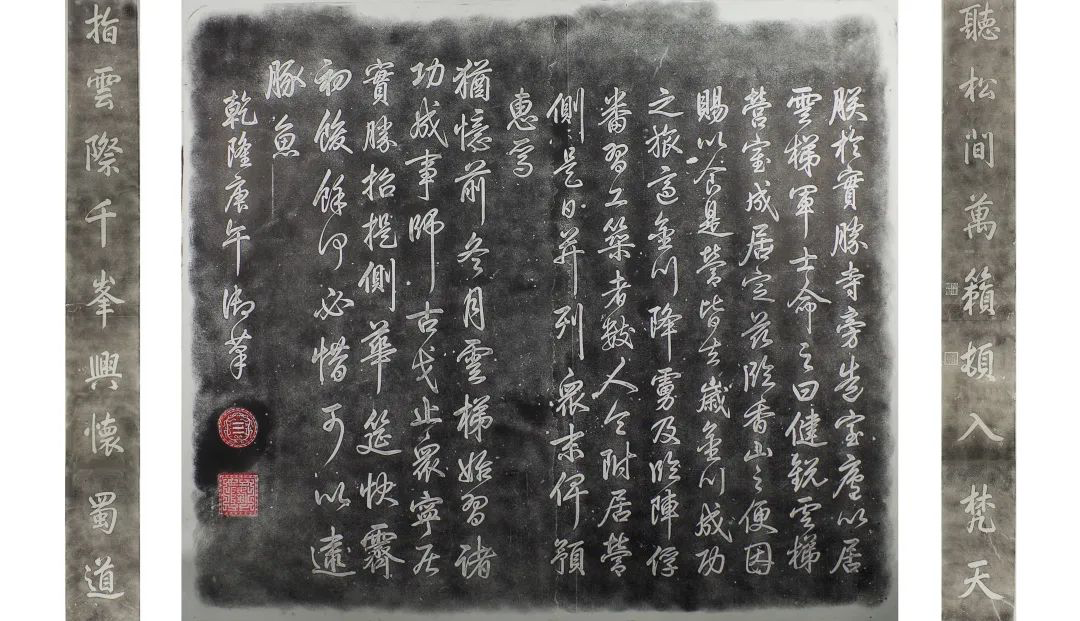 聽松間萬籟頓入梵天
朕於實勝寺旁造室廬以居
雲梯軍士命之曰健銳雲梯
營室成居定茲臨香山之便因
賜以食是營皆去歲金川成功
之旅適金川降虜及臨陣俘
番習工築者數人令附居營
側是日并列衆末俾預
惠焉
猶憶前冬月雲梯始習諸
功成事師古戈止衆寧居
實勝招提側華筵快霽
初餕餘何必惜可以逮
豚魚
乾隆庚午御筆
指雲際千峯興懷蜀道